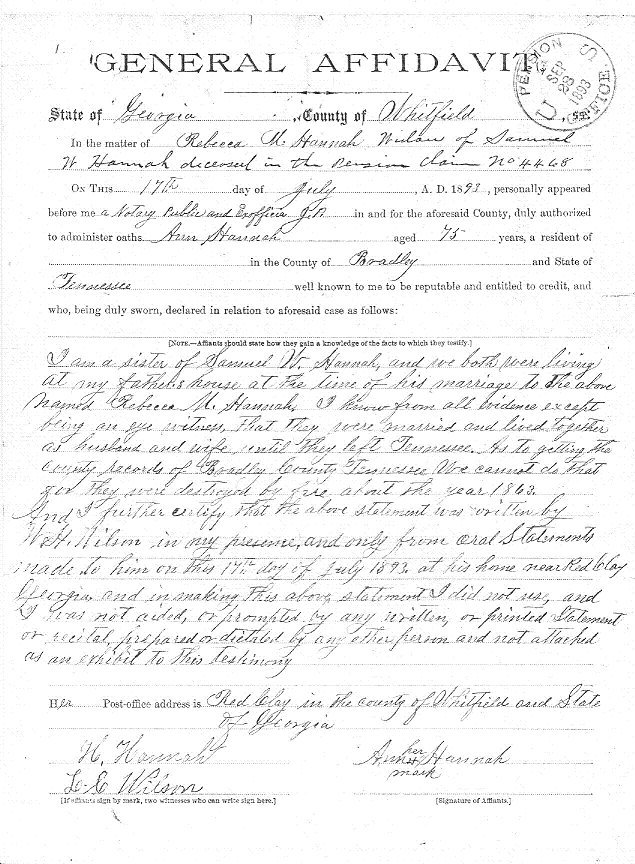 GENERAL AFFIDAVIT
U S PENSION OFFICE
SEP 23 1893
State of Georgia, County of Whitfield, ss:
In the matter of Rebecca M. Hannah Widow of Samuel
W Hannah deceased in the Pension Claim No 4468
ON THIS 17th day of July, A. D. 1893, personally appeared
before me a Notary Public and Exofficio J.P. in and for the aforesaid County, duly authorized
to administer oaths. Ann Hannah aged 75 years, a resident of
in the County of Bradley and State of
Tennessee well known to me to be reputable and entitled to credit, and
who, being duly sworn, declared in relation to aforesaid case as follows:
[NOTE.—Affiants should state how they gain a knowledge of the facts to which they testify.]
I am a sister of Samuel W. Hannah, and we both were living
at my father's house at the time of his marriage to the above
named Rebecca M. Hannah, I know from all evidence except
being an eye witness, that they were married and lived together
as husband and wife, until they left Tennessee. As to getting the
County records of Bradley County Tennessee We cannot do that
for they were destroyed by fire about the year 1863.
And I further certify that the above statement was written by
W.H. Wilson in my presence, and only from oral Statements
made to him on this 17th day of July 1893. at his home near Red Clay
Georgia and in making this above statement I did not use, and
I was not aided, or prompted by any written, or printed Statement
or recital, prepared or dictated by any other person and not attached
as an exhibit to this testimony
Her Post-office address is Red Clay in the county of Whitfield and State
of Georgia
H. Hannah
L. E Wilson
[If affiants sign by mark, two witnesses who can write sign here.]
Ann her Hannah
mark
[Signature of Affiants.]